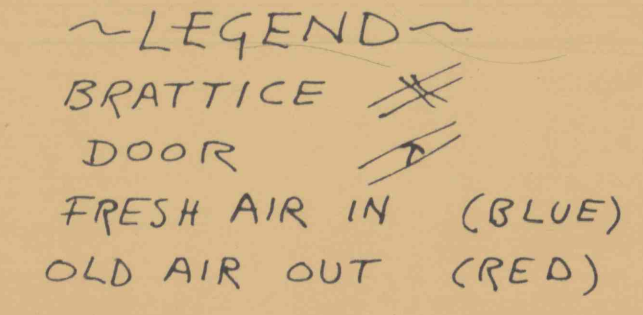 ~LEGEND~
BRATTICE
DOOR
FRESH AIR IN (BLUE)
OLD AIR OUT (RED)